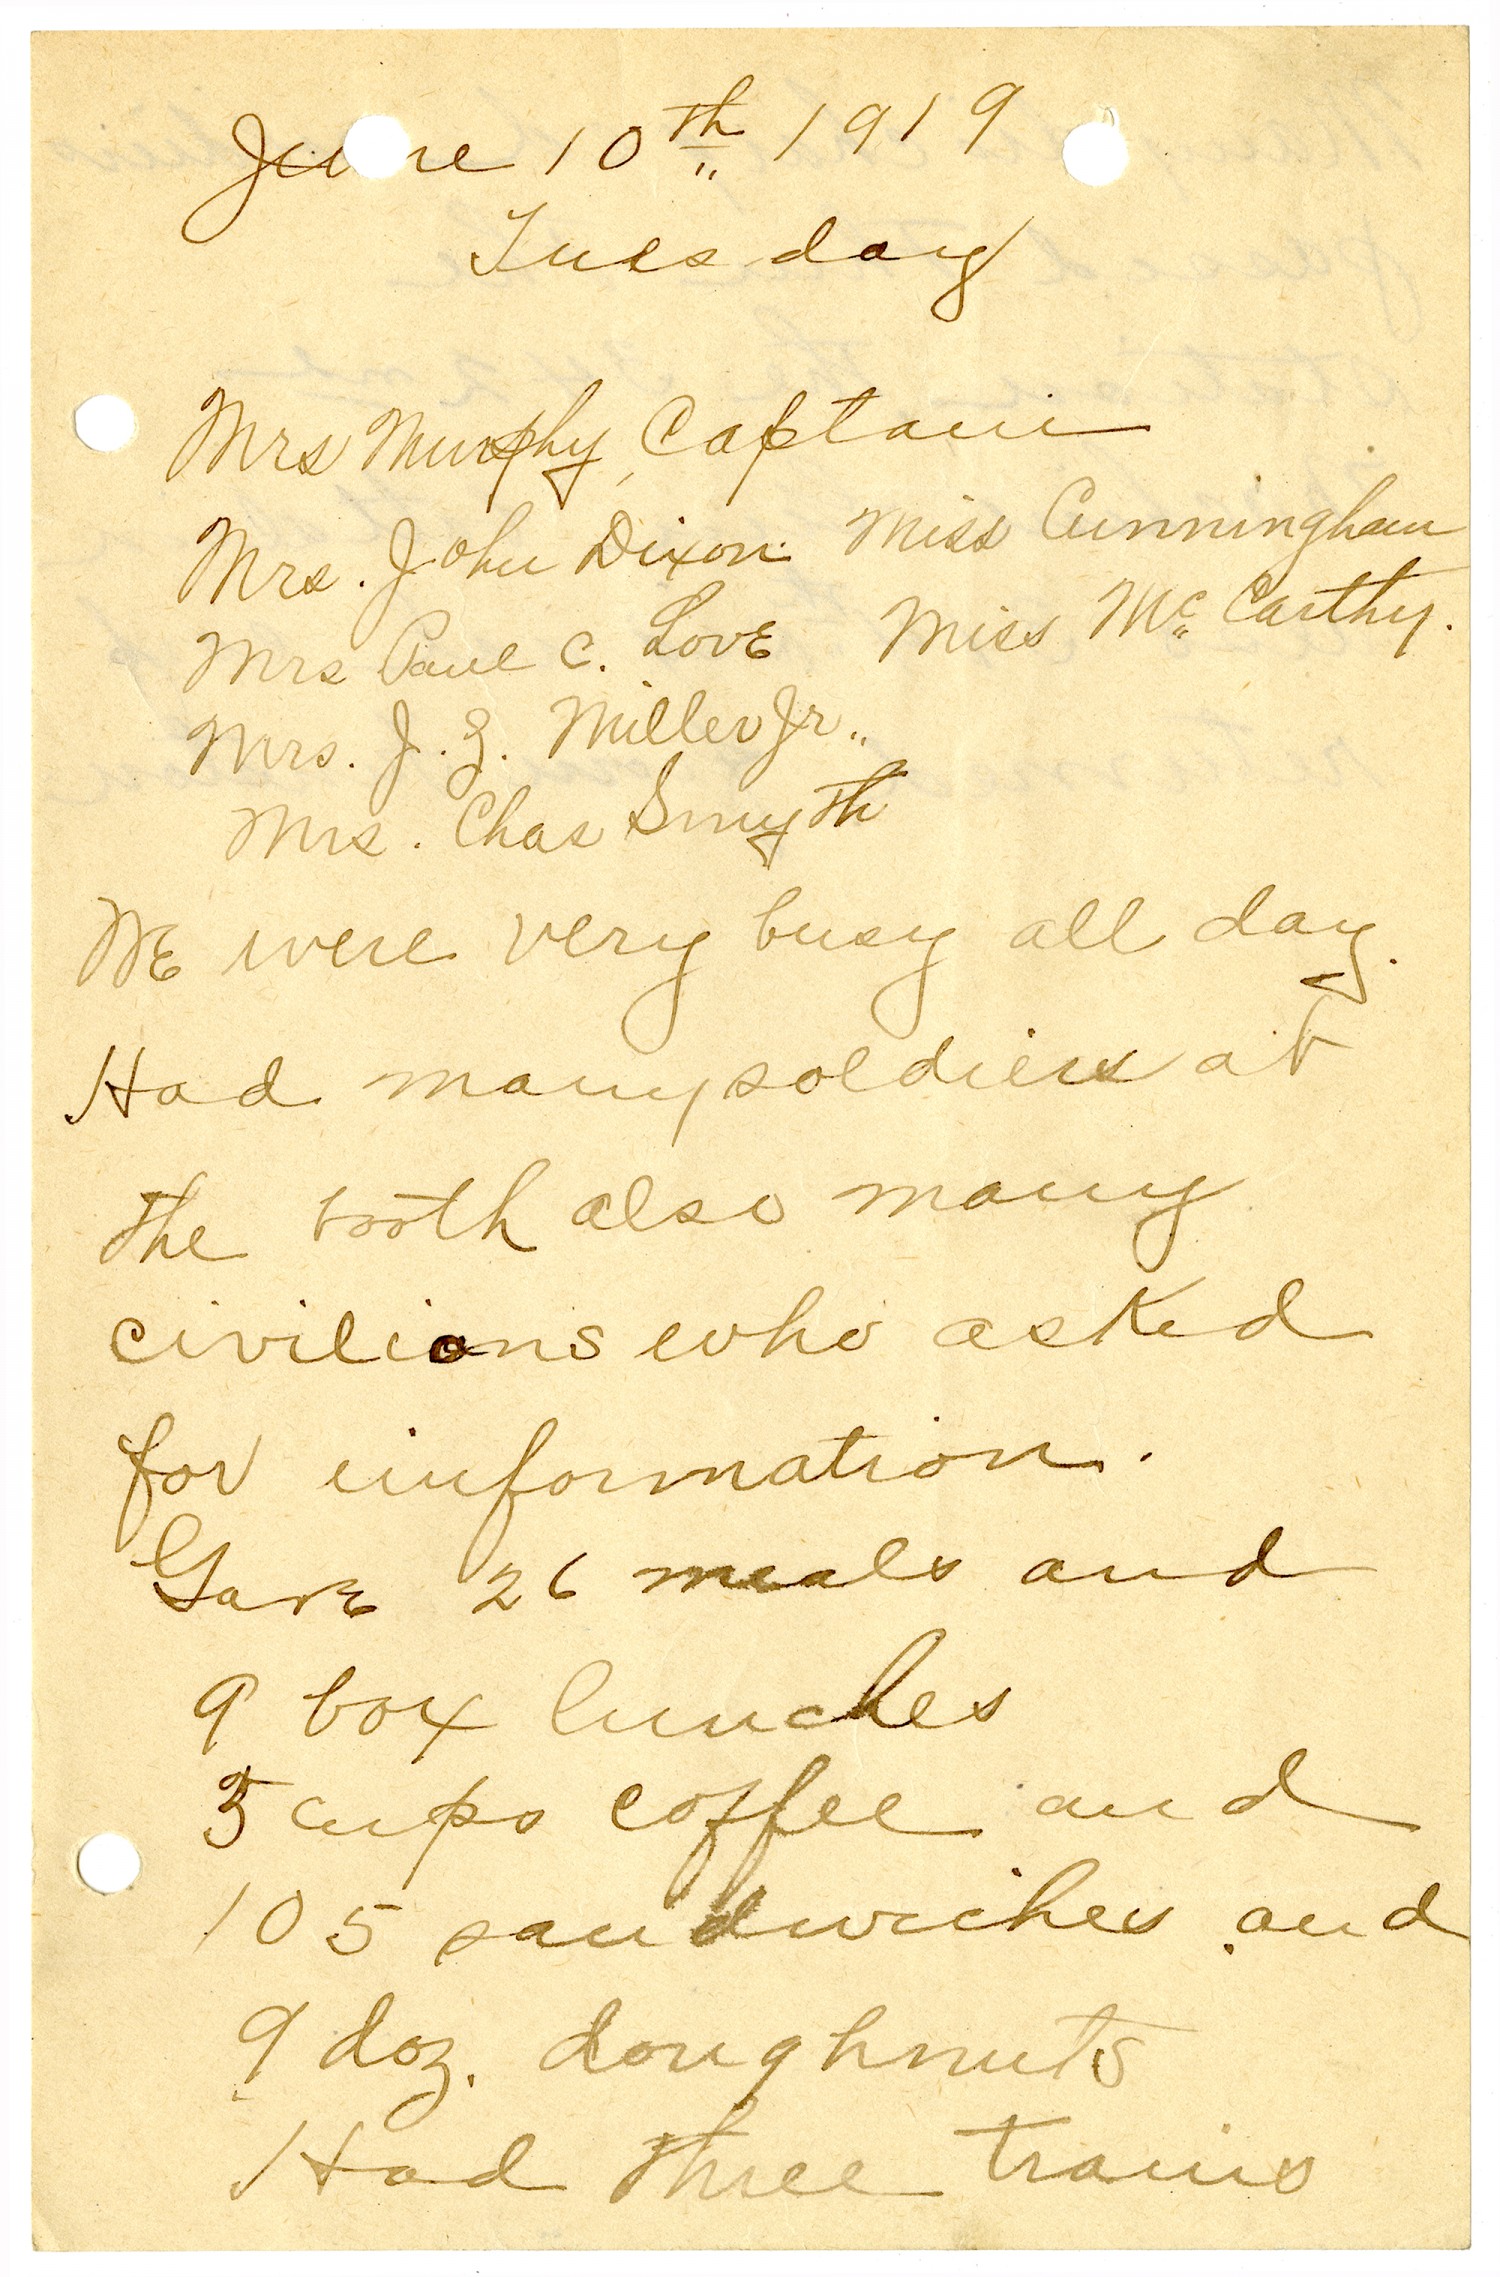 June 10th 1919
Tuesday
Mrs Murphy, Captain
Mrs. John Dixon. Miss Cunningham
Mrs Paul C. Love Miss Mc Carthy.
Mrs. J. Z. Miller Jr.
Mrs. Chas Smyth
We were very busy all day.
Had many soldiers at
the booth also many
civilians who asked
for information.
Gave 26 meals and
9 box lunches
5 cups coffee and
105 sandwiches and
9 doz. doughnuts
Had three trains